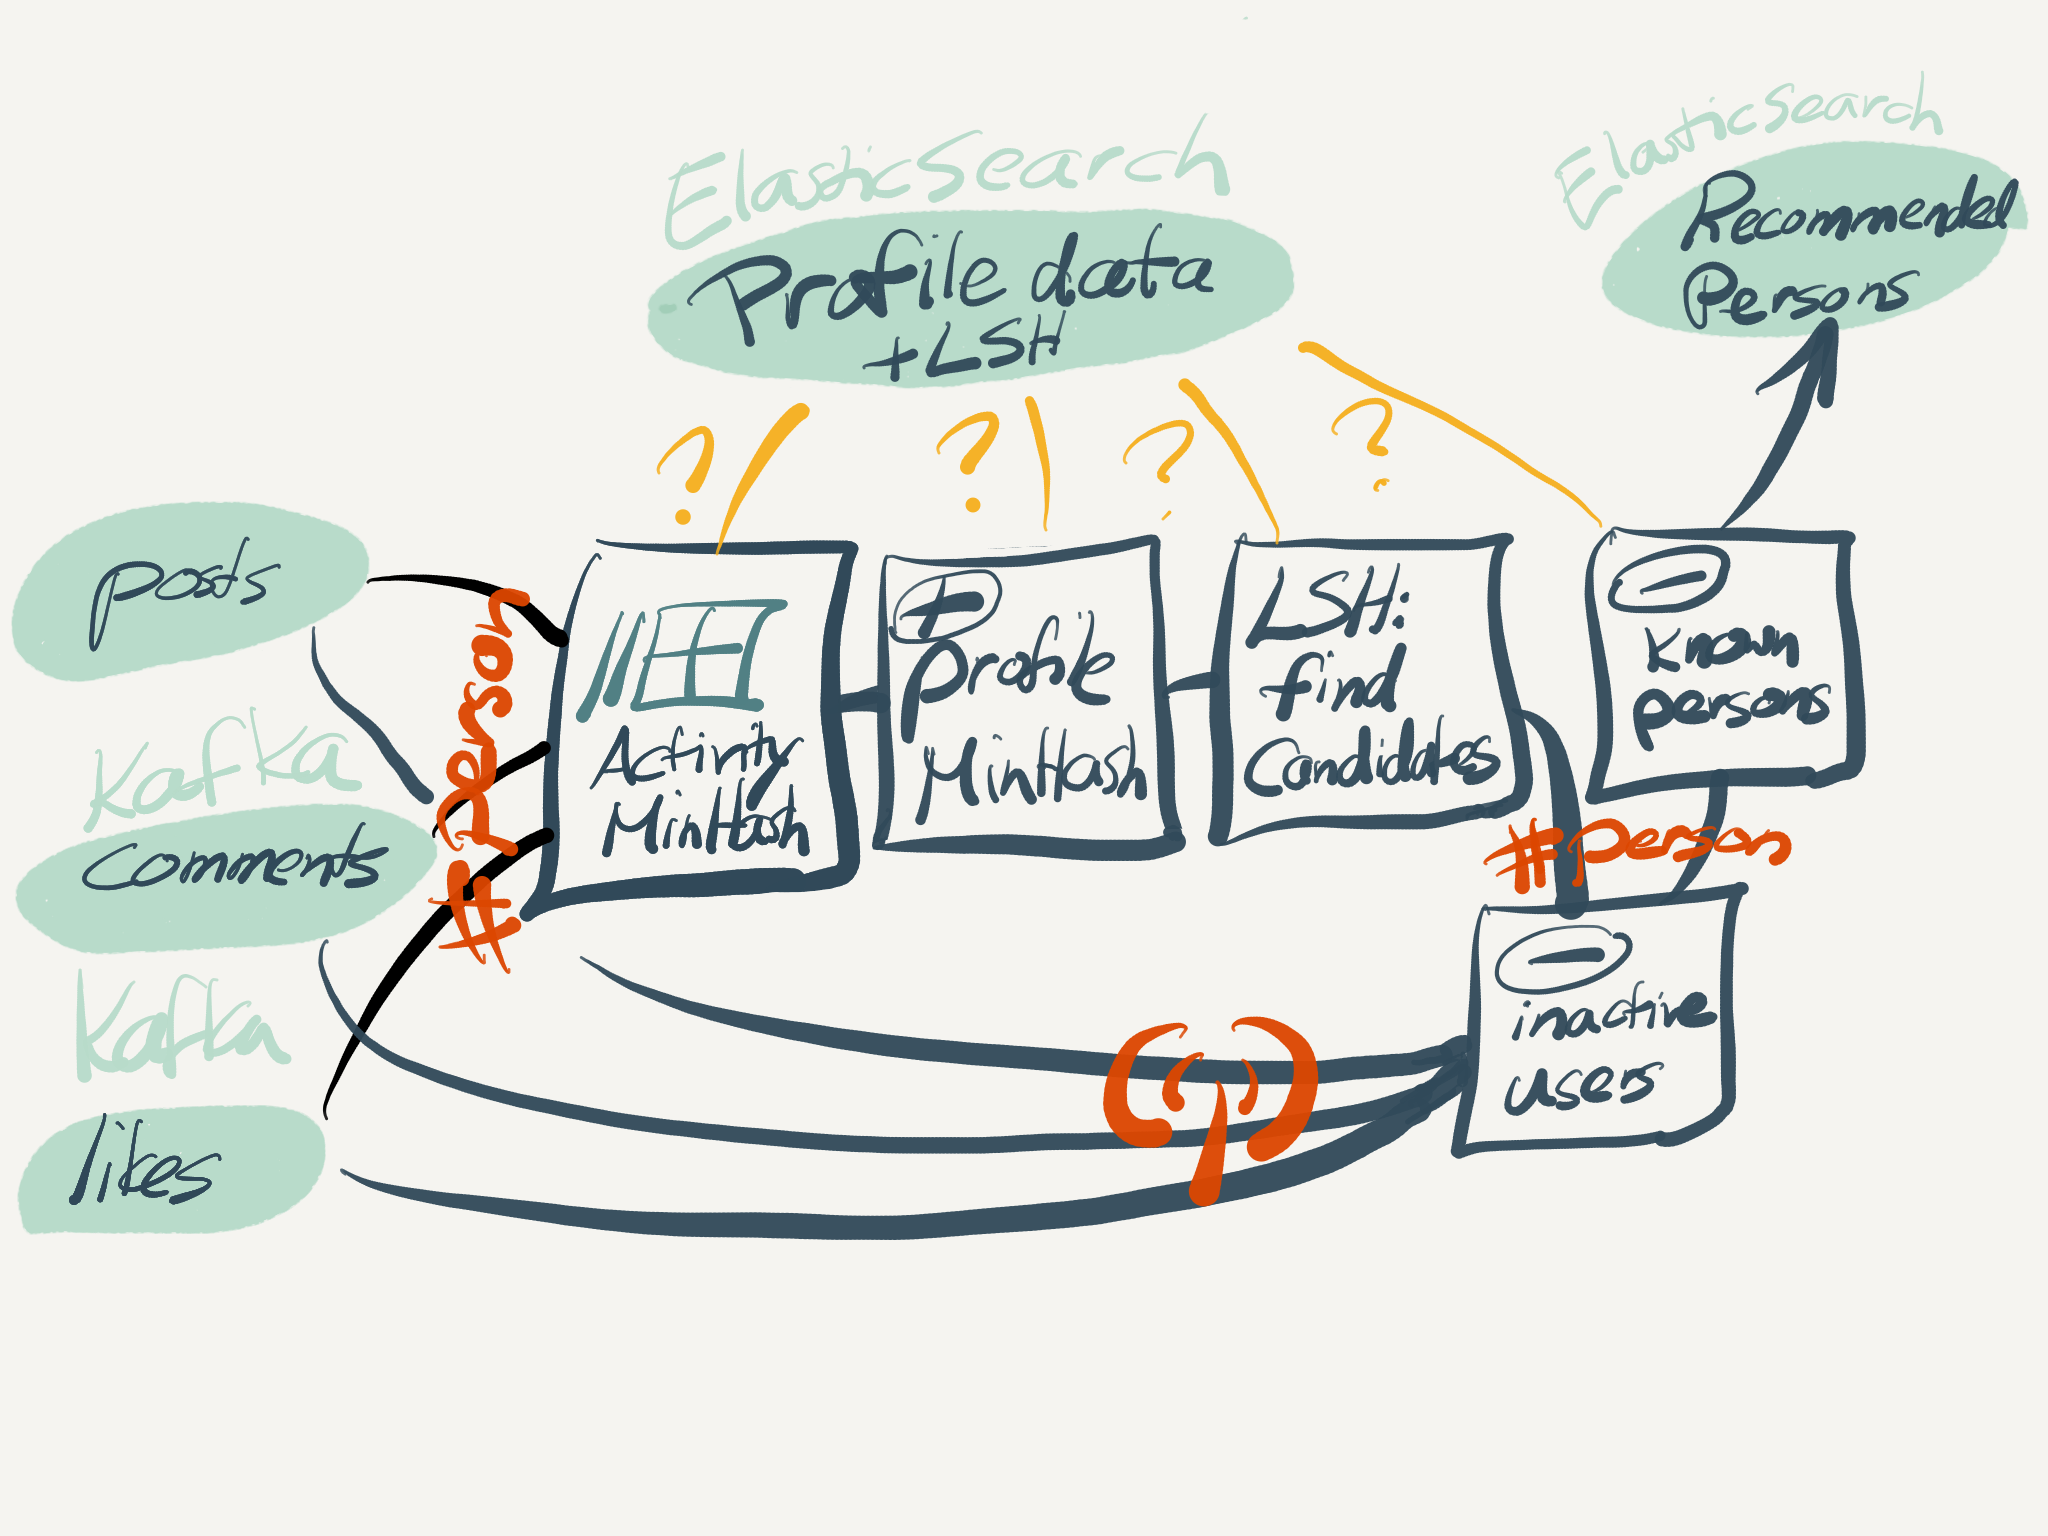 ElasticSearch
Profile data
+LSH
ElasticSearch
Recommended
Persons
?
?
?
?
posts
Kafka
Comments
Kafka
likes
#Person
Activity
MinHash
+
profile
MinHash
LSH:
find
Candidates
−
known
persons
#person
−
inactive
users